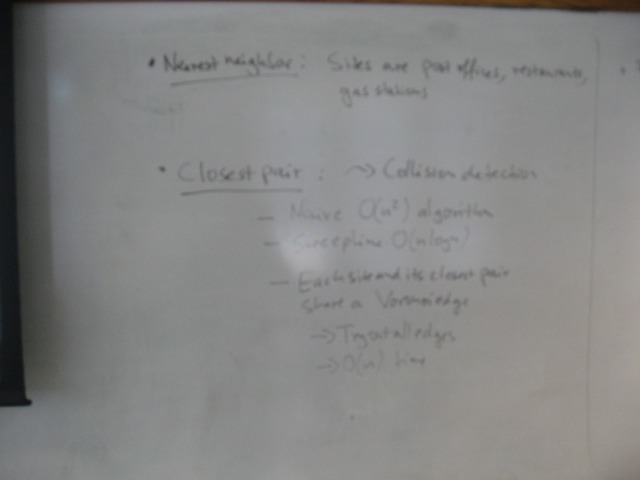 • Nearest neighbor: Sites are post offices, restaurants,
gas stations
• Closest pair: ~> Collision detection
— Naive O(n²) algorithm
— Sweepline O(n log n)
— Each site and its closest pair
share a Voronoi edge
—> Try out all edges
—> O(n) time